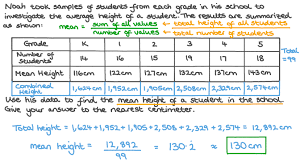 Noah took samples of students from each grade in his school to
investigate the average height of a student. The results are summarized
as shown: mean = sum of all values ← total height of all students
number of values ← total number of students
Grade K 1 2 3 4 5
Number of Students 14 16 15 19 17 18 Total = 99
Mean Height 116cm 122cm 127cm 132cm 137cm 143cm
Combined Height 1,624cm 1,952cm 1,905cm 2,508cm 2,329cm 2,574cm
Use his data to find the mean height of a student in the school.
Give your answer to the nearest centimeter.
Total height = 1,624 + 1,952 + 1,905 + 2,508 + 2,329 + 2,574 = 12,892 cm
mean height = 12,892 / 99 = 130.2 ≈ 130 cm